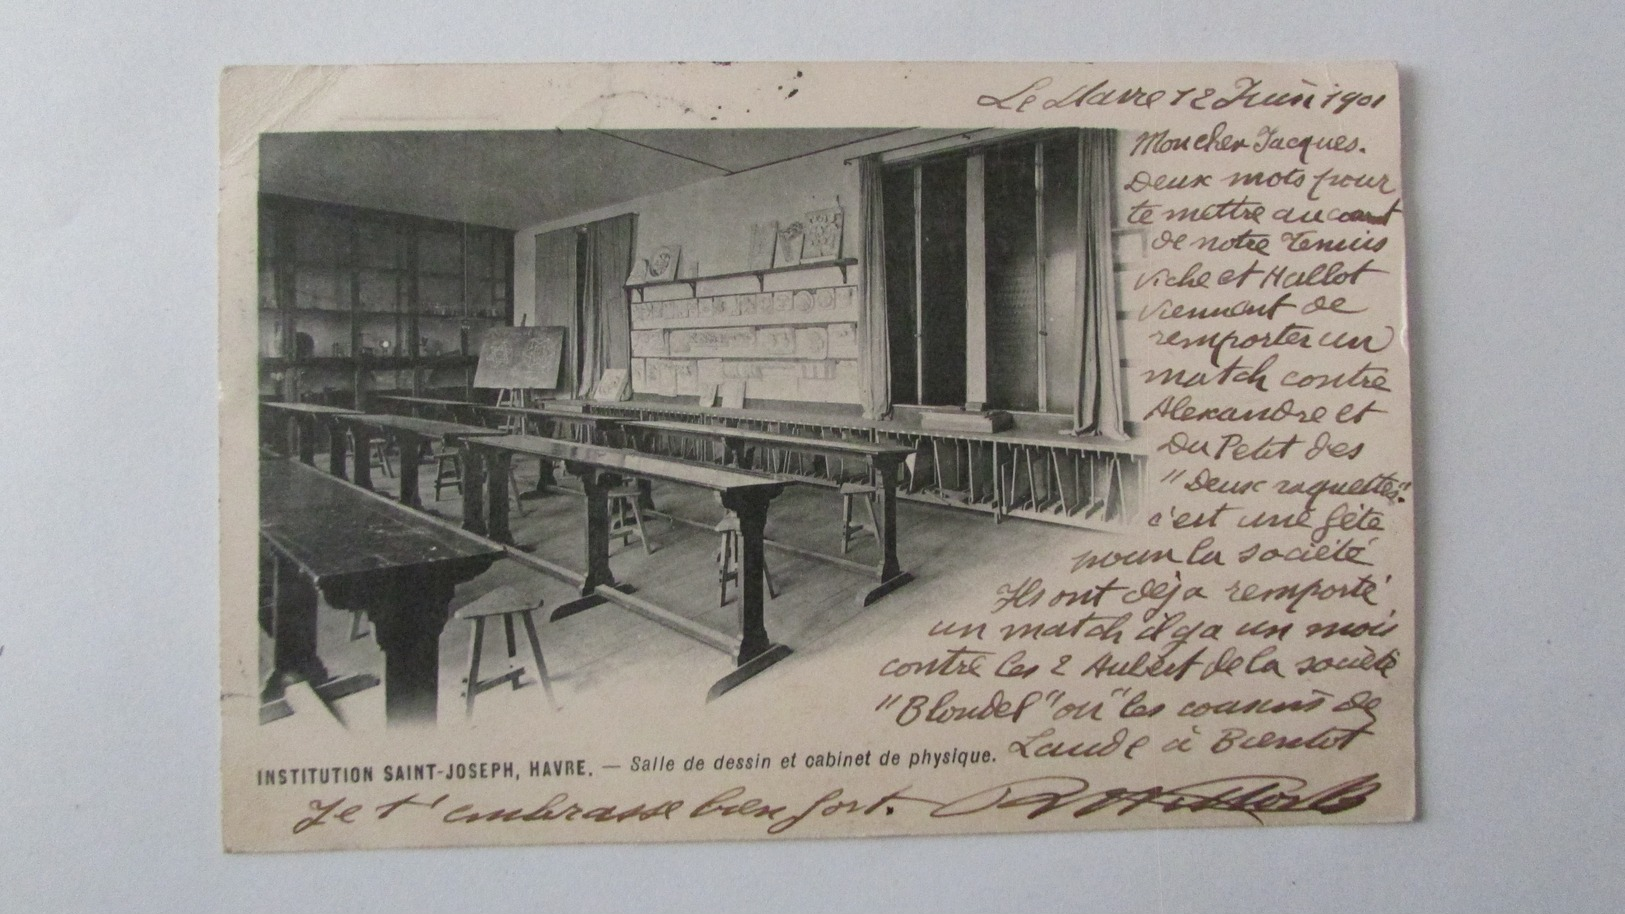 Le Havre 12 Juin 1901
Mon cher Jacques.
Deux mots pour
te mettre au
de notre Tennis
Viche et Hallot
viennent de
remporter un
match contre
Alexandre et
Du Petit des
"Deux raquettes".
c'est une fête
pour la société
Ils ont déja remporté
un match il y a un mois
contre les 2 Aubert de la société
"Blondel" ou "les cousins de
Laude à Bientot
INSTITUTION SAINT-JOSEPH, HAVRE. — Salle de dessin et cabinet de physique.
Je t'embrasse bien fort.